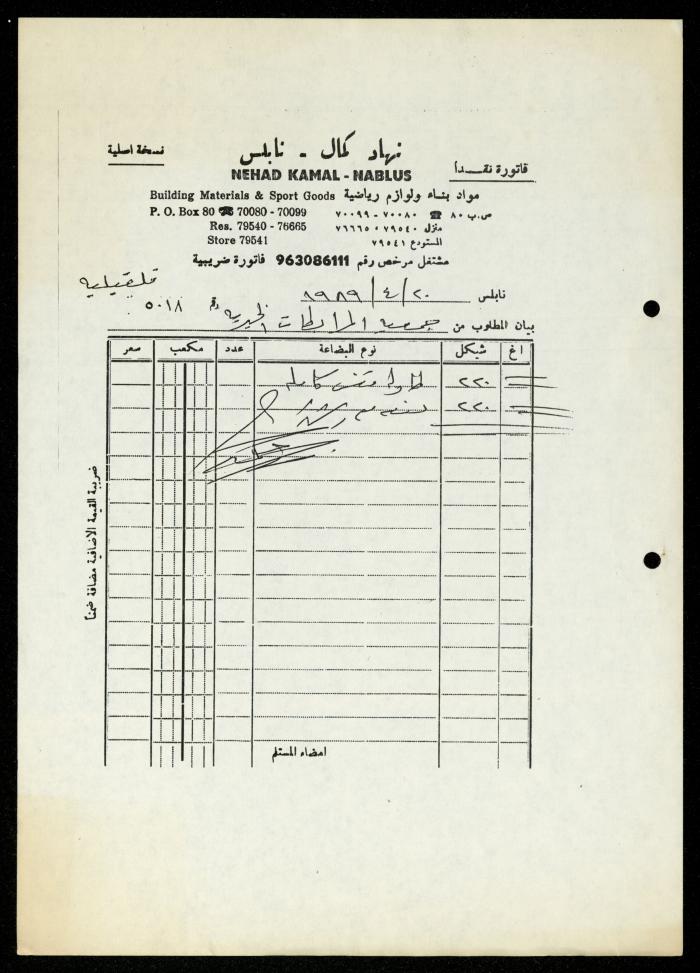 نسخة اصلية
نهاد كمال - نابلس
فاتورة نقداً
NEHAD KAMAL - NABLUS
Building Materials & Sport Goods مواد بناء ولوازم رياضية
P. O. Box 80 ☎ 70080 - 70099
ص.ب ٨٠ ☎ ٧٠٠٨٠ - ٧٠٠٩٩
Res. 79540 - 76665
منزل ٧٩٥٤٠ - ٧٦٦٦٥
Store 79541
المستودع ٧٩٥٤١
مشتغل مرخص رقم 963086111 فاتورة ضريبية
قلقيلية
نابلس ٢٠/٤/١٩٨٩
رقم ٥٠١٨
بيان المطلوب من جمعية المرابطات الخيرية
اغ شيكل نوع البضاعة عدد مكعب سعر
٢٢٠ طاولة تنس كاملة
٢٢٠
ضريبة القيمة الاضافية مضافة ضمناً
امضاء المستلم